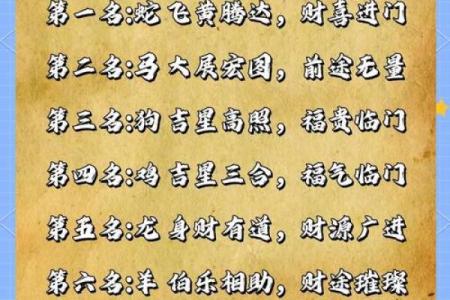 第一名:蛇 飞黄腾达，财喜进门
第二名:马 大展宏图，前途无量
第三名:狗 吉星高照，福贵临门
第四名:鸡 吉星三合，福气临门
第五名:龙 身财有道，财源广进
第六名:羊 伯乐相助，财途璀璨